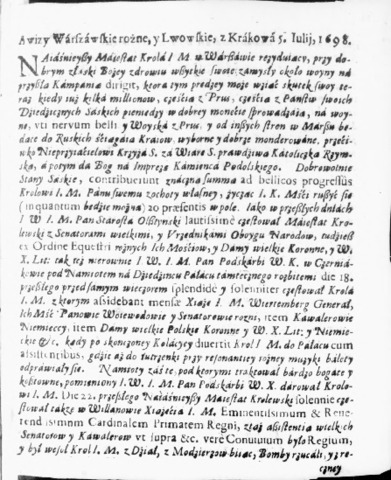 Awizy Warszawskie rożne, y Lwowskie, z Krákowá 5. Iulij, 1698.
NAiáśnieyßy Máiestat Krolá I M. w Wárßáwie rezyduiący, przy do-
brym z łáski Bożey zdrowiu wßytkie swoie zamysły około woyny ná
przyßłą Kámpánią dirigit, ktora tym prędzey może wziąć skutek swoy te-
raz kiedy iuż kilká millionow, częścią z Prus, częścią z Páństw swoich
Dźiedźicznych Sáskich pieniędzy w dobrey monećie sprowádzáią, ná woy-
nę, vti nervum belli y Woyská z Prus, y od inßych stron w Marßu bę-
dące do Ruskich śćiągáią Kráiow, wyborne y dobrze monderowáne, przećiw-
ko Nieprzyiaćielowi Krzyżá S. zá Wiárę S. prawdźiwą Kátolicką Rzym-
ską, á potym da Bog ná Imprezę Kámieńcá Podolskiego. Dobrowolnie
Stany Sáskie, contribuerunt znáczną summę ad bellicos progressus
Krolowi I. M. Pánu swemu z ochoty własney, życząc I. K. Mśći rußyć się
(inquantum będźie możná) zo præsentis w pole. Iáko w przeßłych dniách
I W I. M. Pan Stárostá Olßtyński lautissimè częstował Máiestat Kro-
lewski z Senatorámi wielkimi, y Vrzędnikámi Oboygu Narodow, tudźieß
ex Ordine Equestri rożnych Ich Mośćiow, y Dámy wielkie Koronne, y W.
X. Lit: ták też nierownie I W. I. M. Pan Podskárbi W. K. w Czerniá-
kowie pod Namiotem ná Dźiedźińcu Páłacu támtecznego rozbitem: die 18.
przeßłego przed sámym wieczorem splendidè y solenniter częstował Krolá
I. M. z ktorym assidebant mensæ Xiążę I. M. Wiertemberg Generał,
Ich Mść Pánowie Woiewodowie y Senatorowie rożni, item Káwálerowie
Niemieccy, item Dámy wielkie Polskie Koronne y W. X. Lit: y Niemie-
ckie &c. kędy po skończoney Kolácyey diuertit Krol I M. do Páłacu cum
assistentibus, gdźie áż do iutrzenki przy resonántiey rożney muzyki bálety
odpráwiáły się. Namioty záśie, pod ktorymi tráktował bárdzo bogáte y
kosztowne, pomieniony I. W. I. M. Pan Podskárbi W. X. dárował Krolo-
wi I. M. Die 22. przeßłego Naiáśnieyßy Máiestat Krolewski solennie czę-
stował tákże w Willánowie Xiążęćiá I. M. Eminentissimum & Reue-
rendissimum Cardinalem Primatem Regni, zkąd assistentia wielkich
Senatorow y Káwálerow vt supra &c. verè Conuiuium było Regium,
y był wesoł Krol I. M. z Dźiał, z Modźierzow biiąc, Bomby rzucáli, y rze-
czney